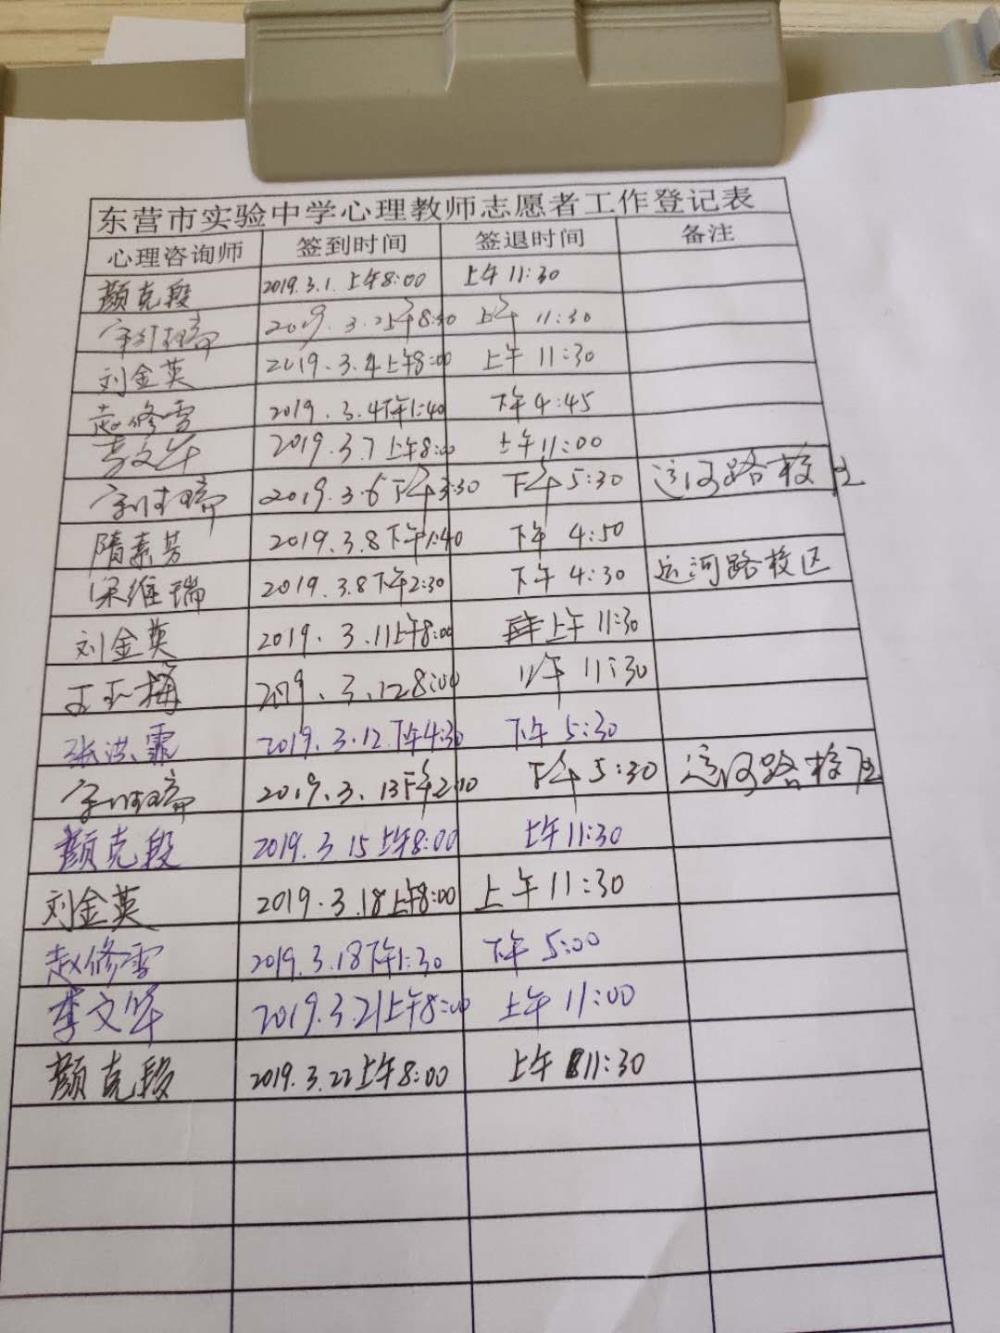 东营市实验中学心理教师志愿者工作登记表
心理咨询师 签到时间 签退时间 备注
颜克段 2019.3.1.上午8:00 上午11:30
2019.3.2上午8:30 上午 11:30
刘金英 2019.3.4上午8:00 上午 11:30
赵修雪 2019.3.4下午1:40 下午4:45
李文华 2019.3.7上午8:00 上午11:00
2019.3.6下午3:30 下午5:30 运河路校区
隋素芳 2019.3.8下午1:40 下午 4:50
梁维瑞 2019.3.8下午2:30 下午 4:30 运河路校区
刘金英 2019.3.11上午8:00 上午 11:30
2019.3.12 8:00 上午 11:30
张洪霏 2019.3.12.下午4:30 下午 5:30
2019.3.13下午2:10 下午5:30 运河路校区
颜克段 2019.3.15上午8:00 上午11:30
刘金英 2019.3.18上午8:00 上午11:30
赵修雪 2019.3.18下午1:30 下午 5:00
李文华 2019.3.21上午8:00 上午 11:00
颜克段 2019.3.22上午8:00 上午 11:30